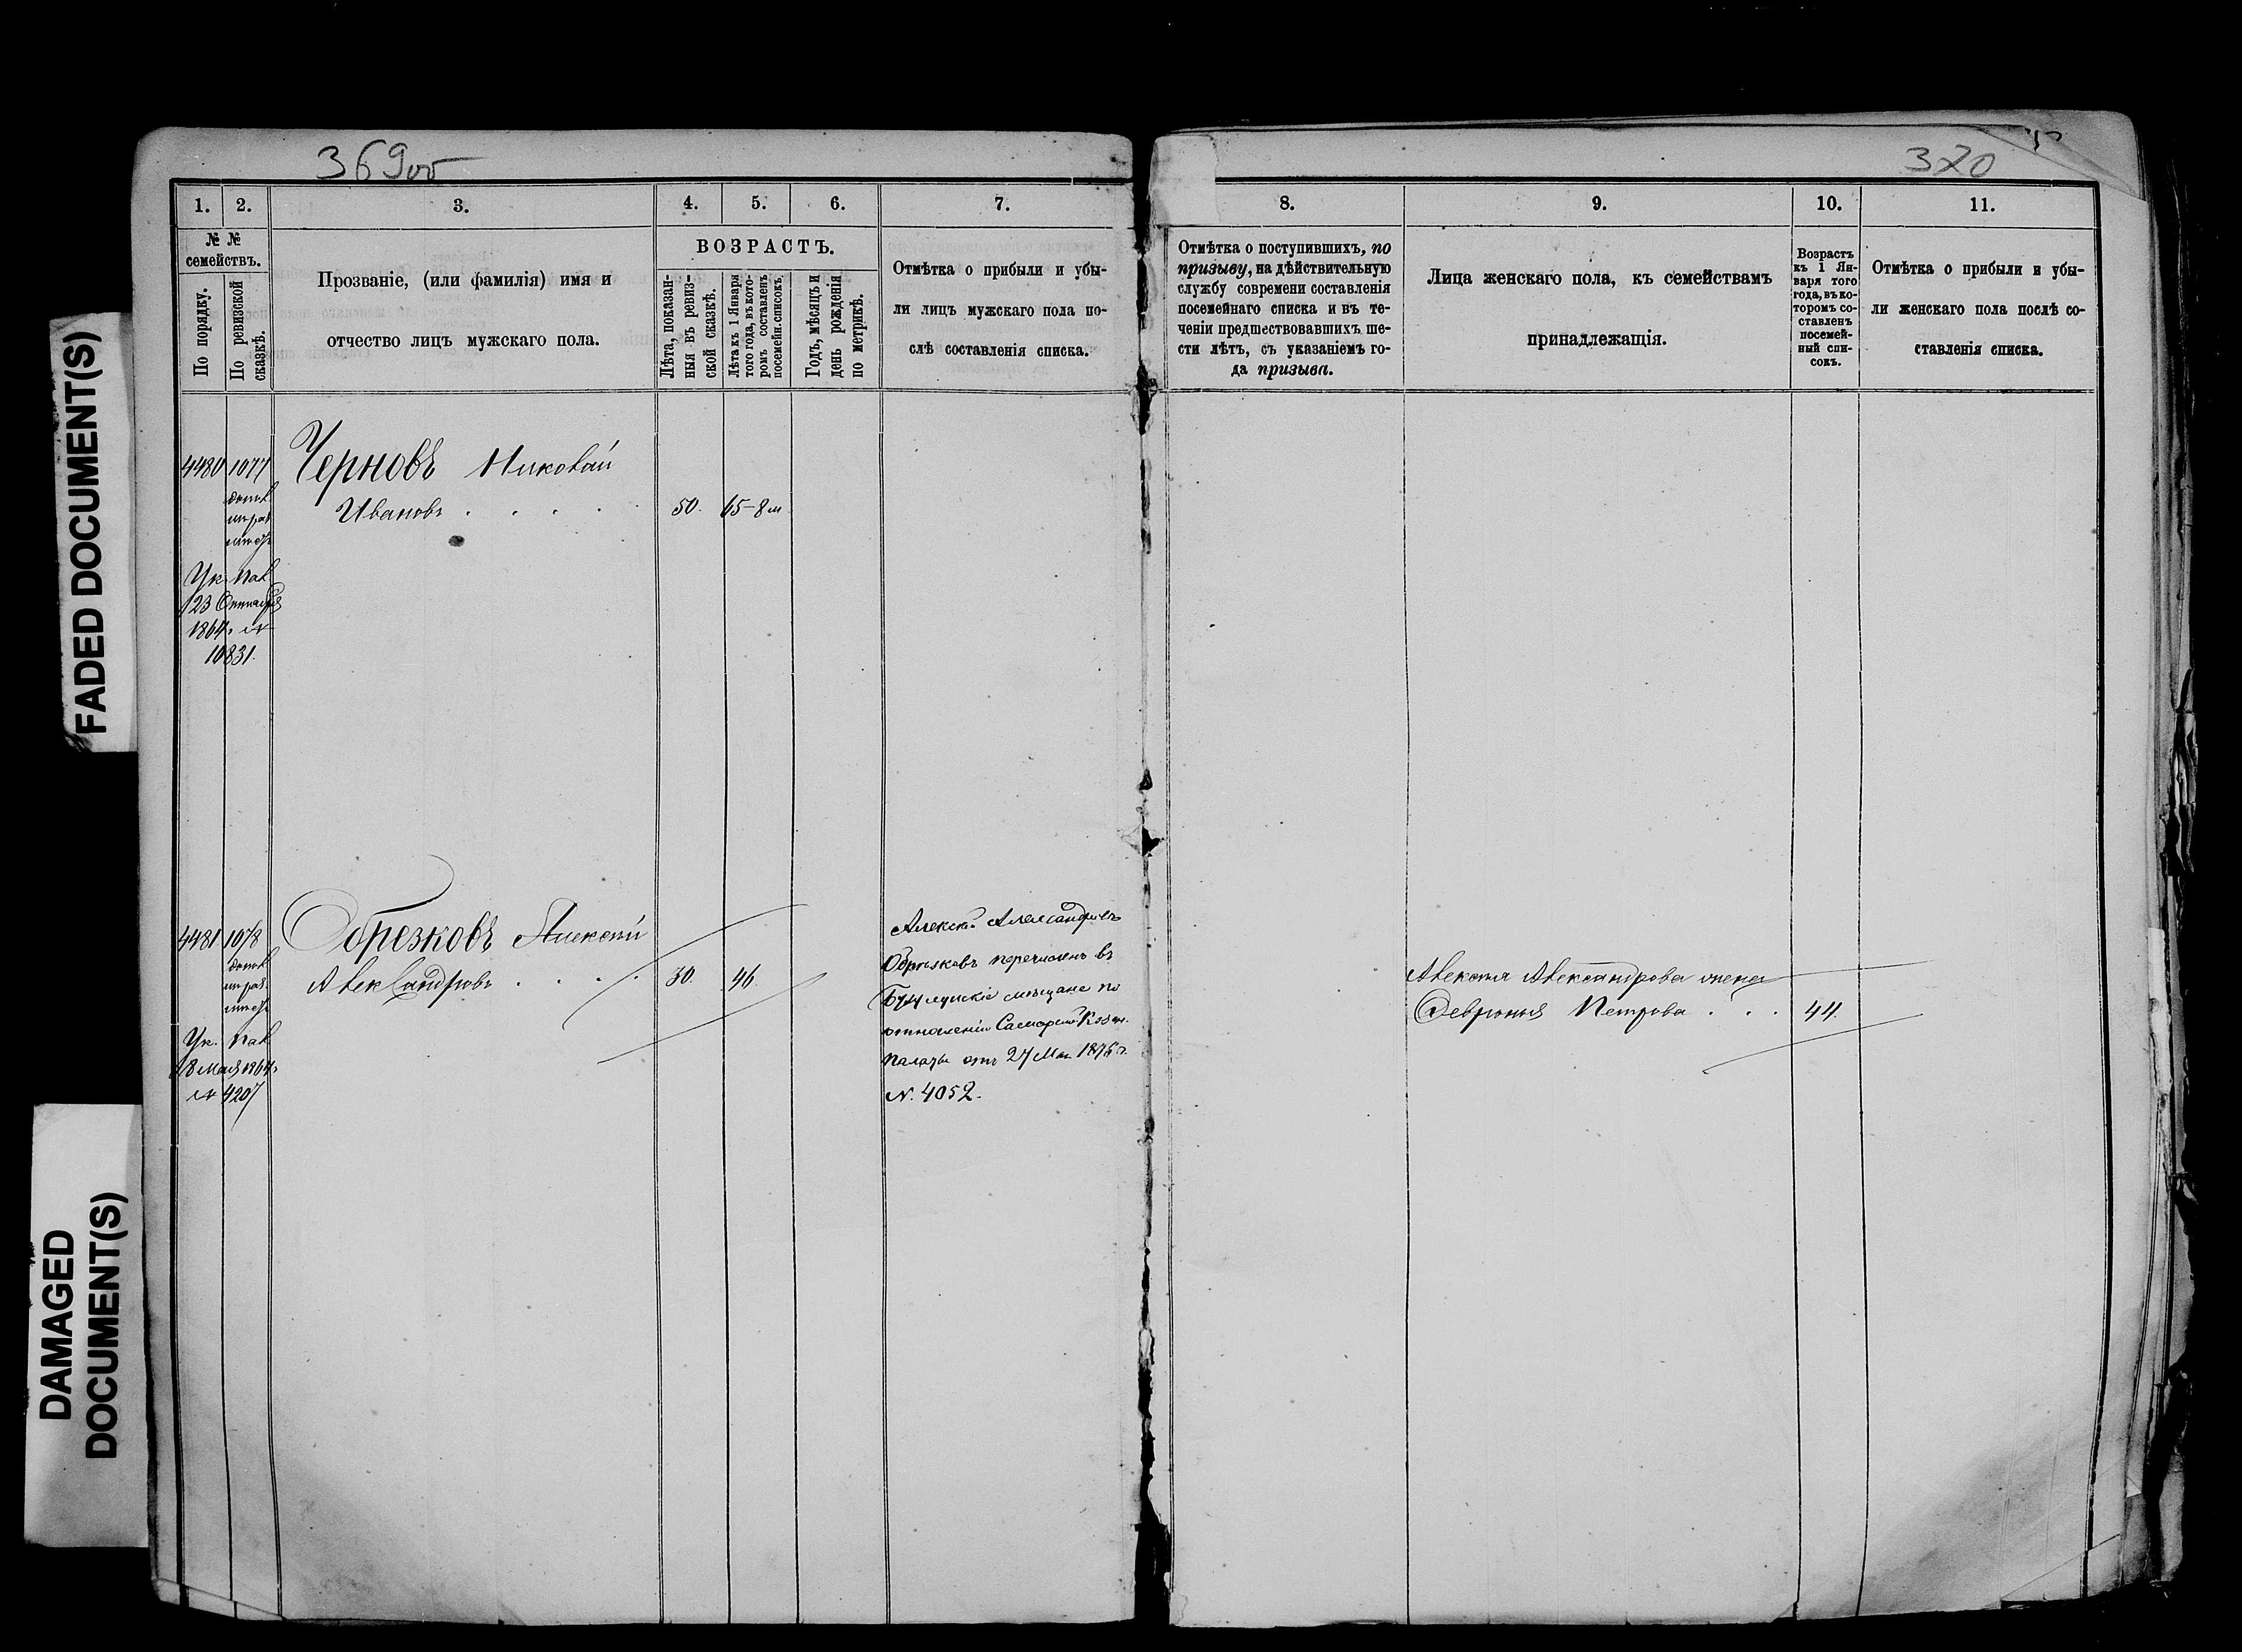 369об
320
1.
2.
3.
4.
5.
6.
7.
8.
9.
10.
11.
№ №
семействъ.
По порядку.
По ревизской
сказкѣ.
Прозваніе, (или фамилія) имя и
отчество лицъ мужскаго пола.
ВОЗРАСТЪ.
Лѣта, показан-
ныя въ ревиз-
ской сказкѣ.
Лѣта къ 1 Января
того года, въ кото-
ромъ составленъ
посемейн. списокъ.
Годъ, мѣсяцъ и
день рожденія
по метрикѣ.
Отмѣтка о прибыли и убы-
ли лицъ мужскаго пола по-
слѣ составленія списка.
Отмѣтка о поступившихъ, по
призыву, на дѣйствительную
службу современи составленія
посемейнаго списка и въ те-
ченіи предшествовавшихъ ше-
сти лѣтъ, съ указаніемъ го-
да призыва.
Лица женскаго пола, къ семействамъ
принадлежащія.
Возрастъ
къ 1 Ян-
варя того
года, въ ко-
торомъ со-
ставленъ
посемей-
ный спи-
сокъ.
Отмѣтка о прибыли и убы-
ли женскаго пола послѣ со-
ставленія списка.
4480 1077 Черновъ Николай
Ивановъ 50. 65-8 м
Ук. Пал.
23
1864 г. №
10831.
4481 1078 Обрезковъ Алексѣй
Александровъ 30. 46.
Ук. Пал.
18 Мая 1864 г.
№ 4207
Алексѣй Александровъ
Обрезковъ перечисленъ въ
мѣщане по
отношенію Самарской Казен.
Палаты отъ 27 Мая 1876 г.
№. 4052.
Алексѣя Александрова жена
Февронья Петрова . . . 44.
FADED DOCUMENT(S)
DAMAGED
DOCUMENT(S)